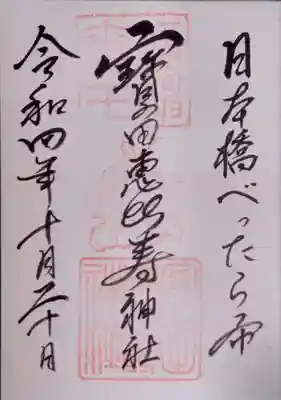 日本橋べったら市
寶田恵比寿神社
令和四年十月二十日